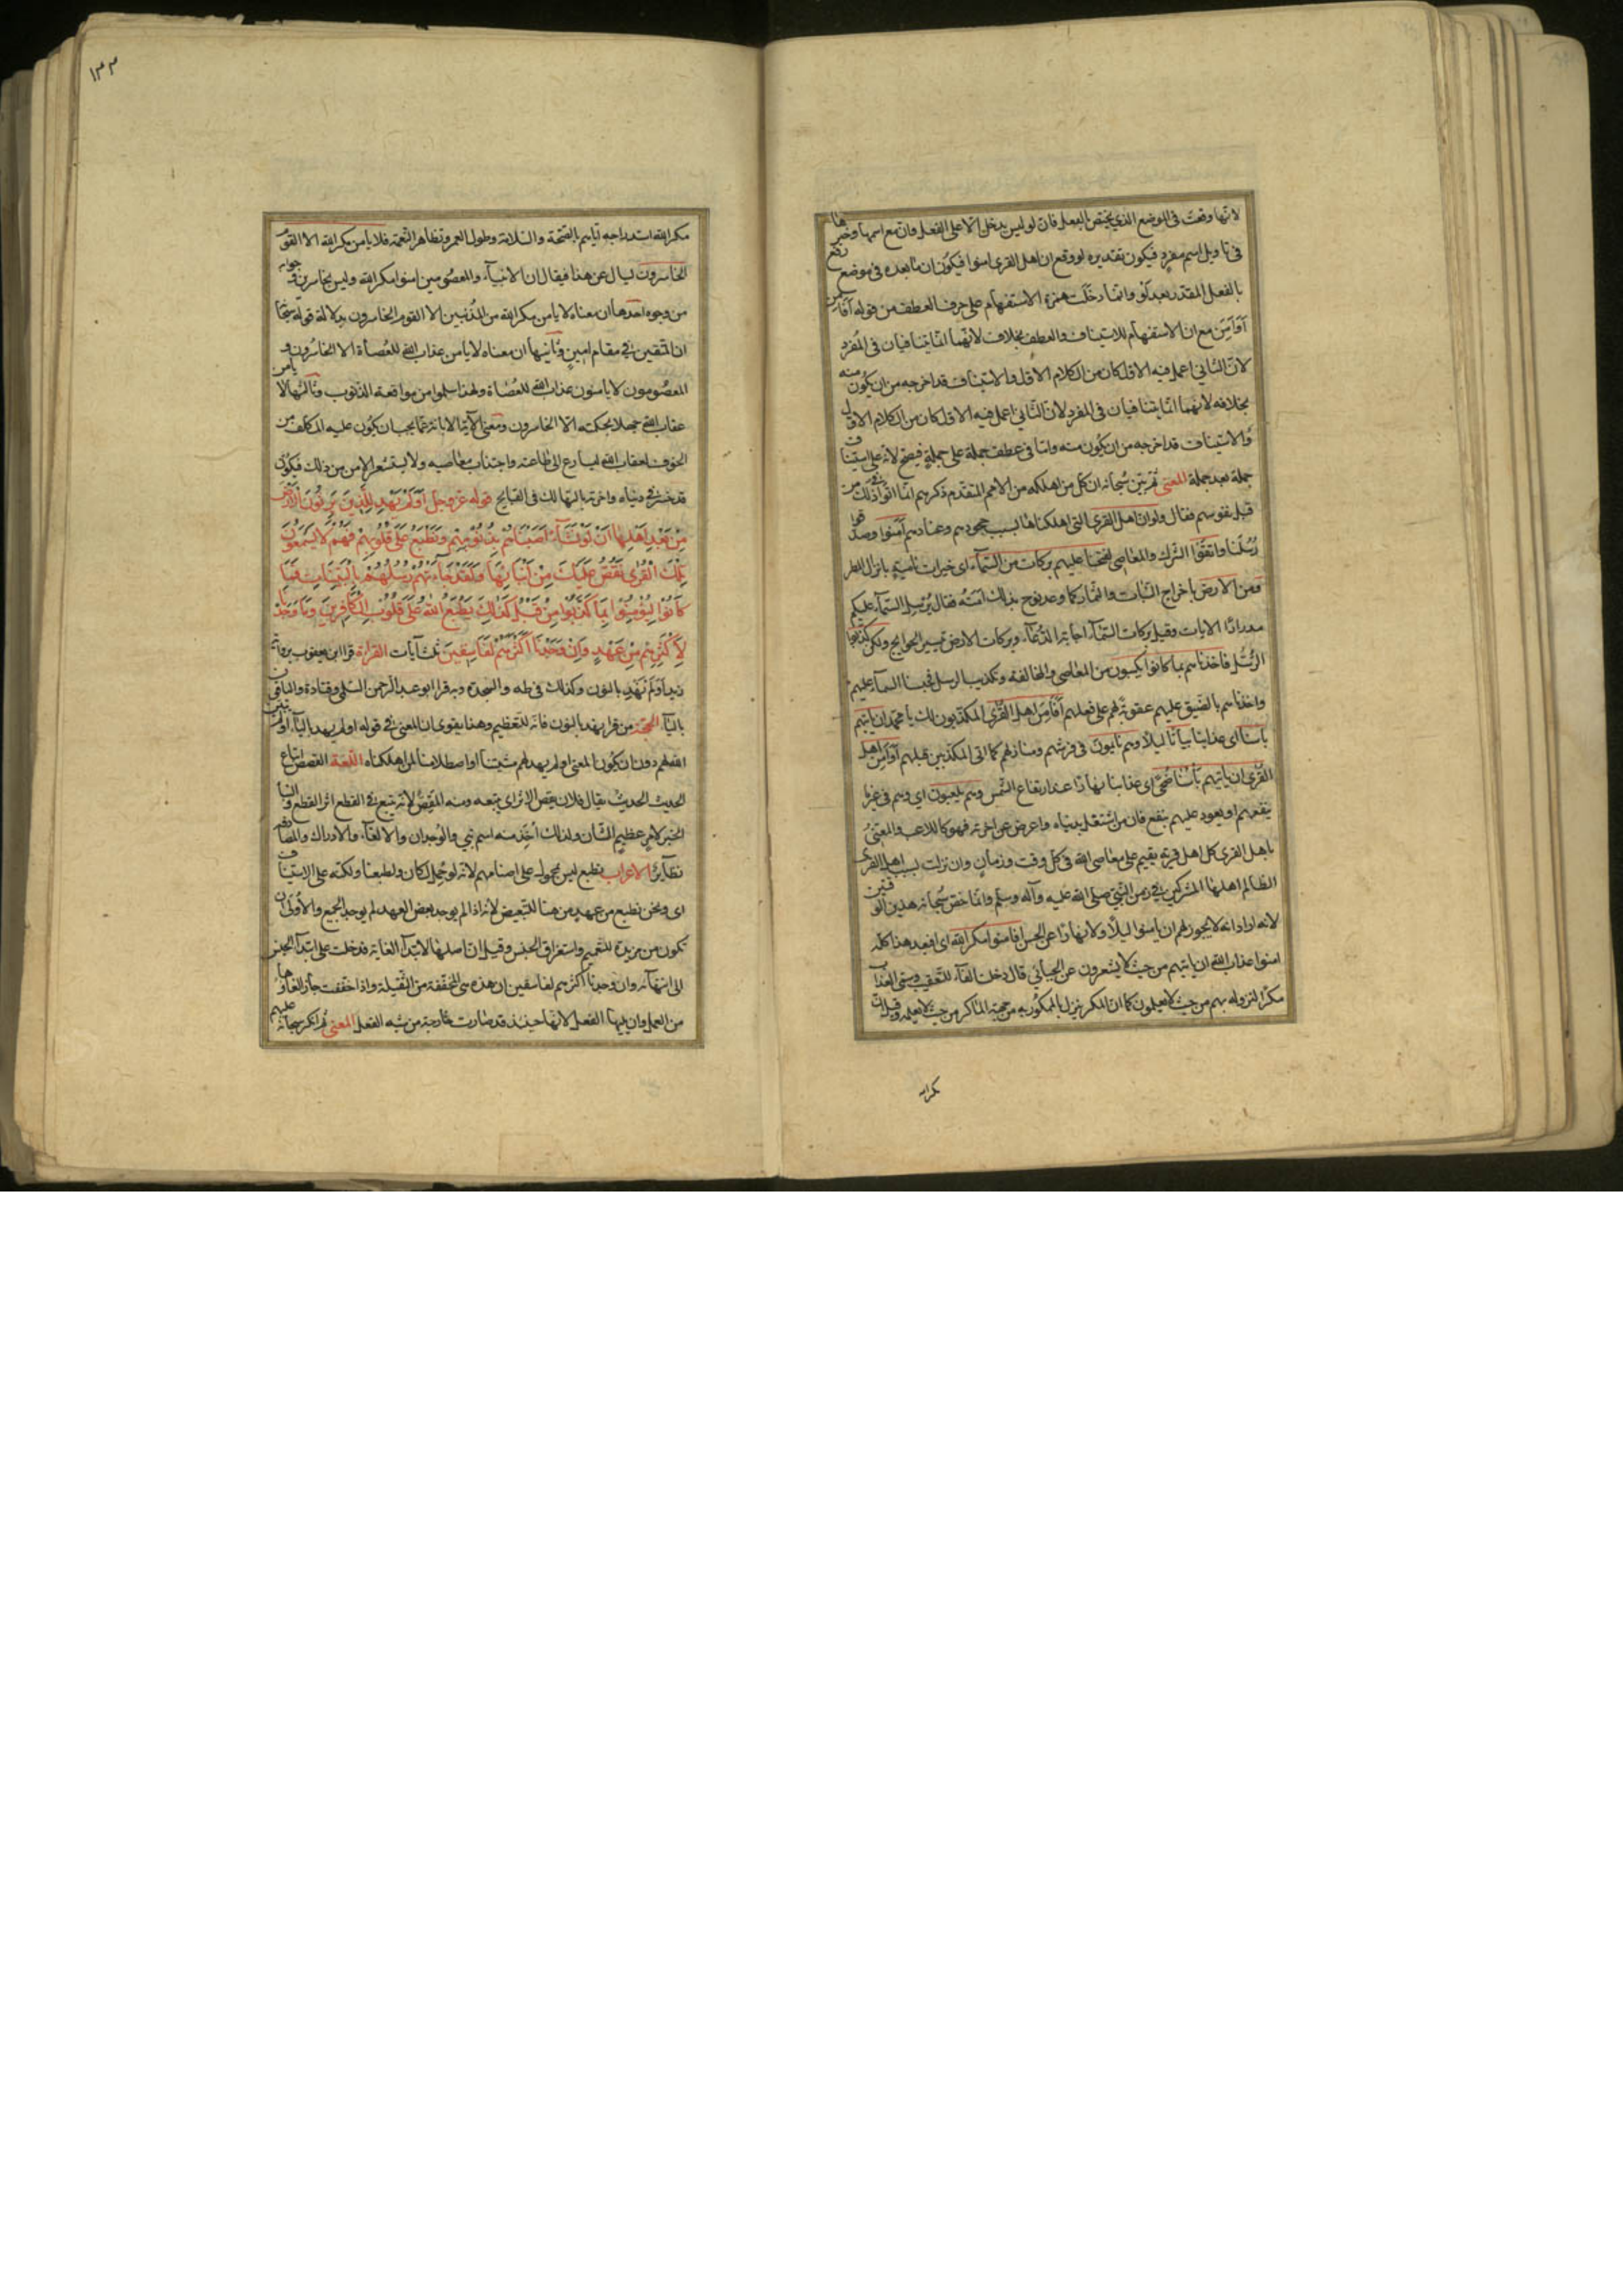 لانها وقعت في الموضع الذي يختص بالفعل فان لو ليس يدخل الا على الفعل وان مع اسمها وخبرها
في تاويل اسم مفرد فيكون تقديره لو وقع ان اهل القرى امنوا فيكون ان ما بعده في موضع رفع
بالفعل المقدر بعد لو وانما دخلت همزة الاستفهام على حرف العطف من قوله افامن
اوامن مع ان الاستفهام للاستيناف والعطف بخلاف لانهما انما يتنافيان في المفرد
لان الثاني اعمل فيه الاول كان من الكلام الاول والاستيناف قد اخرجه من ان يكون منه
بخلافه لانهما انما يتنافيان في المفرد لان الثاني اعمل فيه الاول كان من الكلام الاول
والاستيناف قد اخرجه من ان يكون منه واما في عطف جملة على جملة فيصح لانه على استيناف
جملة بعد جملة المعنى ثم بين سبحانه ان كل من اهلكه من الامم المتقدم ذكرهم انما اتوا في ذلك من
قبل نفوسهم فقال ولو ان اهل القرى التي اهلكناها بسبب جحودهم وعنادهم آمنوا وصدقوا
رسلنا واتقوا الشرك والمعاصي لفتحنا عليهم بركات من السماء اى خيرات نامية بانزال المطر
ومن الارض باخراج النبات والثمار كما وعد نوح بذلك امته فقال يرسل السماء عليكم
مدرارا الايات وقيل بركات السماء اجابة الدعاء وبركات الارض تيسير الحوايج ولكن كذبوا
الرسل فاخذناهم بما كانوا يكسبون من المعاصي والمخالفة وتكذيب الرسل فحبسنا السماء عليهم
واخذناهم بالضيق عليهم عقوبة لهم على فعلهم افامن اهل القرى المكذبون لك يا محمد ان ياتيهم
باسنا اى عذابنا بياتا ليلا وهم نايمون في فرشهم ومنازلهم كما اتى المكذبين قبلهم اوامن اهل
القرى ان ياتيهم باسنا ضحى اى عذابنا نهارا عند ارتفاع الشمس وهم يلعبون اى وهم في غير ما
ينفعهم او يعود عليهم بنفع فان من اشتغل بدنياه واعرض عن اخرته فهو كاللاعب والمعني
باهل القرى كل اهل قرية يقيم على معاصي الله في كل وقت وزمان وان نزلت بسبب اهل القرى
الظالم اهلها المشركين في زمن النبي صلى الله عليه وآله وسلم وانما خص سبحانه هذين الوقتين
لانه اراد انه لا يجوز لهم ان يامنوا ليلا ولا نهارا عن الحسن افامنوا مكر الله اى افبعد هذا كله
امنوا عذاب الله ان ياتيهم من حيث لا يشعرون عن الجبائي قال دخلت الفاء للتعقيب وسمى العذاب
مكرا لنزوله بهم من حيث لا يعلمون كما ان المكر ينزل بالممكور به من جهة الماكر من حيث لا يعلمه وقيل ان
مكر الله
١٣٣
مكر الله استدراجه اياهم بالصحة والسلامة وطول العمر وتظاهر النعمة فلا يامن مكر الله الا القوم
الخاسرون يسال عن هذا فيقال ان الانبياء والمعصومين امنوا مكر الله وليس بخاسرين وجوابه
من وجوه احدها ان معناه لا يامن مكر الله من المذنبين الا القوم الخاسرون بدلالة قوله سبحانه
ان المتقين في مقام امين وثانيها ان معناه لا يامن عذاب الله للعصاة الا الخاسرون و
المعصومون لا يامنون عذاب الله للعصاة ولهذا سلموا من مواقعة الذنوب وثالثها لا يامن
عقاب الله جهلا بحكمته الا الخاسرون ومعنى الآية الابانة عما يجب ان يكون عليه المكلف من
الخوف لعقاب الله ليسارع الى طاعته واجتناب معاصيه ولا يستشعر الامن من ذلك فيكون
قد خسر في دنياه واخرته بالتهالك في القبايح قوله عز وجل اولم يهد للذين يرثون الارض
من بعد اهلها ان لو نشاء اصبناهم بذنوبهم ونطبع على قلوبهم فهم لا يسمعون
تلك القرى نقص عليك من انبائها ولقد جاءتهم رسلهم بالبينات فما
كانوا ليؤمنوا بما كذبوا من قبل كذلك يطبع الله على قلوب الكافرين وما وجدنا
لاكثرهم من عهد وان وجدنا اكثرهم لفاسقين ثلث آيات القراءة قرا ابن يعقوب برواية
زيد اولم نهد بالنون وكذلك في طه والسجدة وبه قرا ابو عبد الرحمن السلمي وقتادة والباقون
بالياء الحجة من قرا نهد بالنون فانه للتعظيم وهذا يقوى ان المعنى في قوله اولم يهد بالياء اولم يبين
الله لهم دون ان يكون المعنى اولم يهد لهم مشيتنا او اصطلامنا لمن اهلكناه اللغة القصص اتباع
الحديث الحديث يقال فلان يقص الاثر اى يتبعه ومنه المقص لانه يتبع في القطع اثر القطع والنبا
الخبر لامر عظيم الشان ولذلك اخذ منه اسم نبي والوجدان والالفاء والادراك والمصادفه
نظائر الاعراب نطبع ليس بمحمول على اصبناهم لانه لو حمل لكان ولطبعنا ولكنه على الاستيناف
اى ونحن نطبع من عهد من هنا للتبعيض لانه اذا لم يوجد بعض العهد لم يوجد الجميع والاولى ان
تكون من مزيدة للتعميم واستغراق الجنس وقيل ان اصلها لابتداء الغاية فدخلت على ابتداء الجنس
الى انتهائه وان وجدنا اكثرهم لفاسقين ان هذه هى المخففة من الثقيلة واذا خففت جاز الغاؤها
من العمل وان يليها الفعل لانها حينئذ قد صارت خارجة من شبه الفعل المعنى ثم انكر سبحانه عليهم